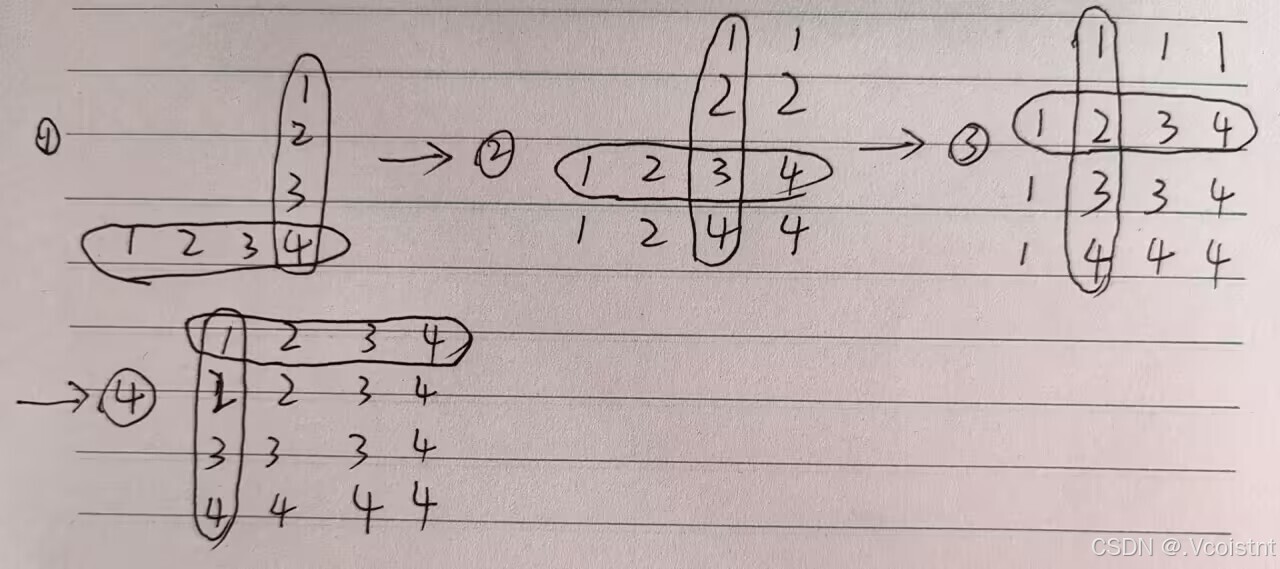 ①
1
2
3
1 2 3 4
→ ②
1 1
2 2
1 2 3 4
1 2 4 4
→ ③
1 1 1
1 2 3 4
1 3 3 4
1 4 4 4
→ ④
1 2 3 4
2 3 4
3 3 3 4
4 4 4 4
CSDN @.Vcoistnt